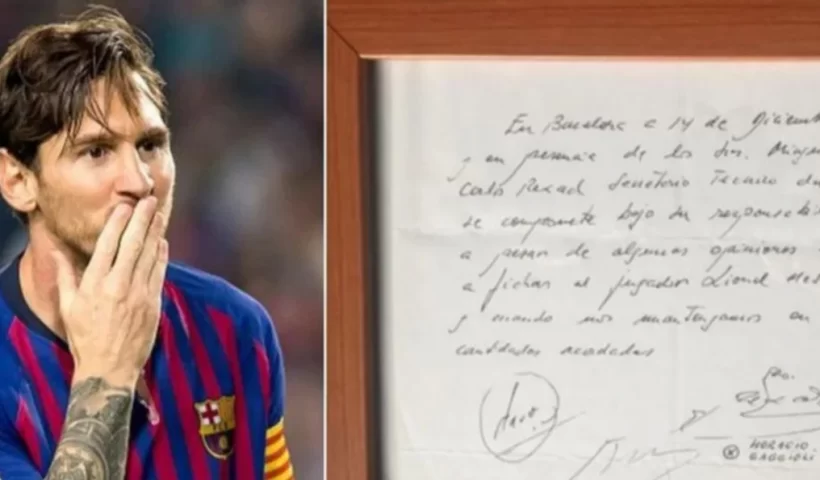 En Barcelona a 14 de Diciemb
y en presencia de los Srs. Ming
Carlos Rexach Secretario Tecnico d
se compromete bajo su responsabi
a pesar de algunas opiniones
a fichar al jugador Lionel Mes
y cuando nos mantengamos en
cantidades acordadas
HORACIO
GAGGIOLI